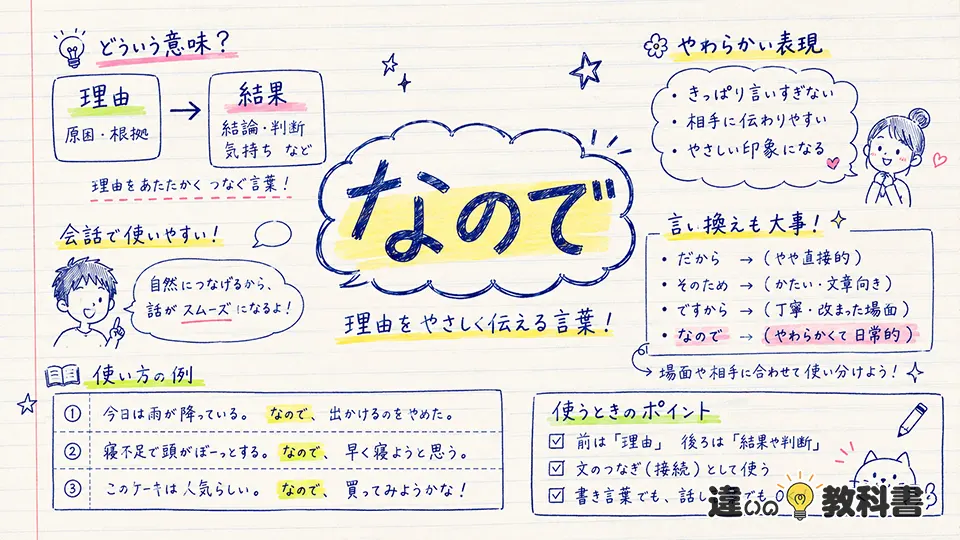 どういう意味？
理由
原因・根拠
結果
結論・判断
気持ち など
理由をあたたかく つなぐ言葉！
会話で使いやすい！
自然につなげるから、
話が スムーズ になるよ！
なので
理由をやさしく伝える言葉！
やわらかい表現
・きっぱり言いすぎない
・相手に伝わりやすい
・やさしい印象になる
言い換えも大事！
・だから → (やや直接的)
・そのため → (かたい・文章向き)
・ですから → (丁寧・改まった場面)
・なので → (やわらかくて日常的)
場面や相手に合わせて使い分けよう！
使い方の例
① 今日は雨が降っている。 なので、 出かけるのをやめた。
② 寝不足で頭がぼーっとする。 なので、 早く寝ようと思う。
③ このケーキは人気らしい。 なので、 買ってみようかな！
使うときのポイント
☑ 前は「理由」 後ろは「結果や判断」
☑ 文のつなぎ(接続)として使う
☑ 書き言葉でも、話し でも
違いの教科書